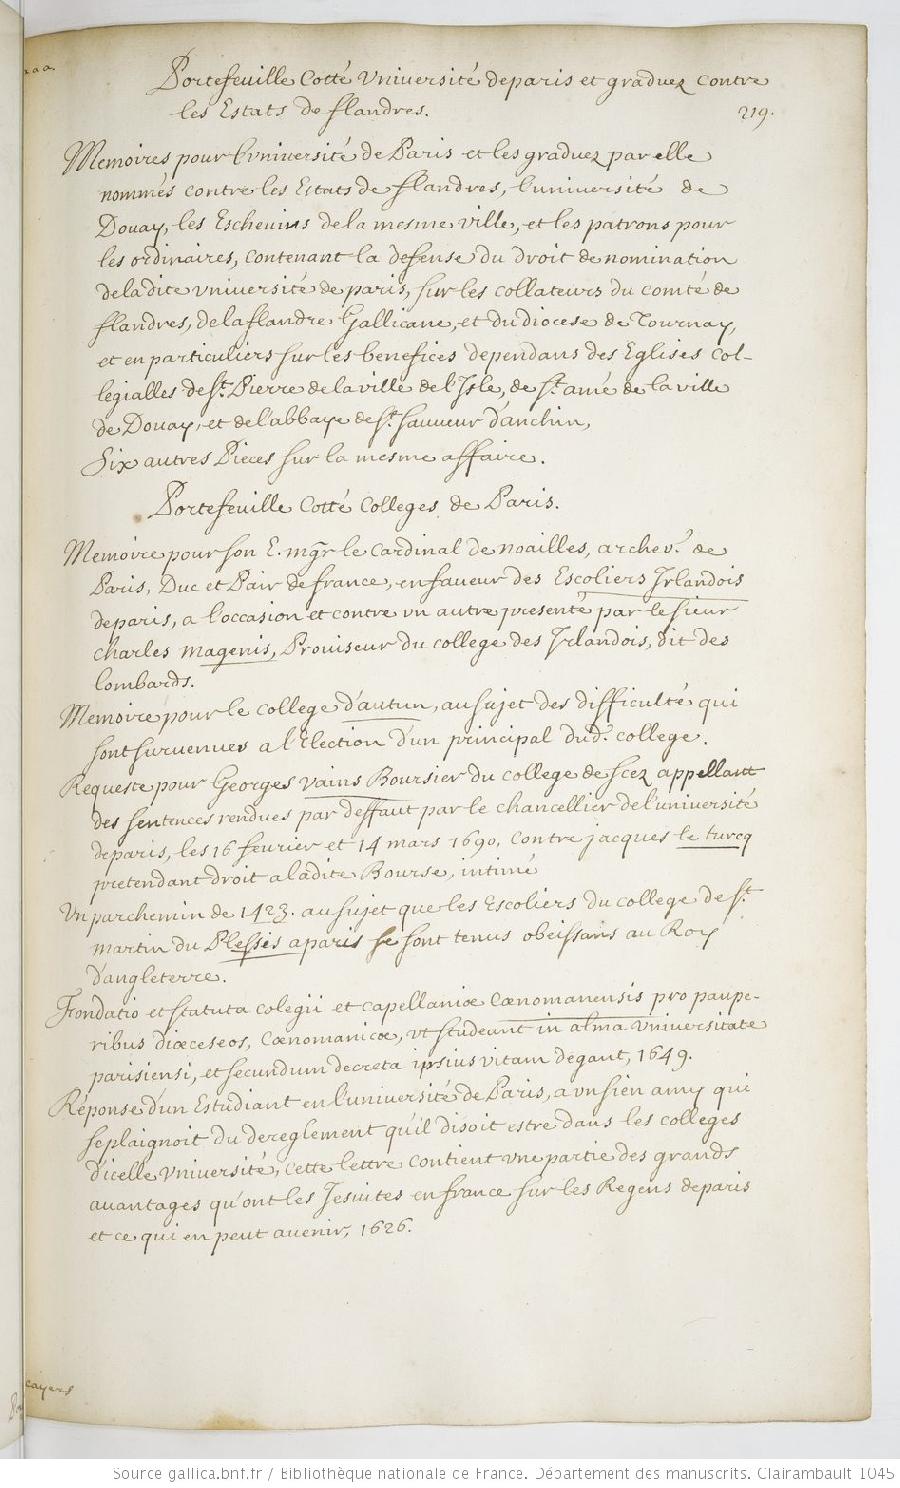 Portefeuille Cotté Université de paris et graduez contre
les Estats de flandres.
219.
Memoires pour l'université de Paris et les graduez par elle
nommés contre les Estats de flandres, l'université de
Douay, les Eschevins de la mesme ville, et les patrons pour
les ordinaires, contenant la defense du droit de nomination
de ladite université de paris, sur les collateurs du comté de
flandres, de la flandre Gallicane, et du diocese de Tournay,
et en particuliers sur les benefices dependans des Eglises Col-
legialles de St. Pierre de la ville de l'Isle, de St. amé de la ville
de Douay, et de l'abbaye de St. Sauveur d'anchin,
Six autres Pieces sur la mesme affaire.
Portefeuille Cotté Colleges de Paris.
Memoire pour son E. mgr le Cardinal de noailles, archev. de
Paris, Duc et Pair de france, en faveur des Escoliers Irlandois
de paris, a l'occasion et contre un autre presenté par le sieur
Charles magenis, Proviseur du college des Irlandois, dit des
lombards.
Memoire pour le college d'autun, au sujet des difficulté qui
sont survenues a l'Election d'un principal dud. college.
Requeste pour Georges vains Boursier du college de scez appellant
des sentences rendues par deffaut par le chancellier de l'université
de paris, les 16 fevrier et 14 mars 1690, contre jacques le turcq
pretendant droit a ladite Bourse, intimé
Un parchemin de 1423. au sujet que les Escoliers du college de St.
martin du Plessis a paris se sont tenus obeissans au Roy
d'angleterre.
Fondatio et statuta colegii et capellaniæ Cænomanensis pro paupe-
ribus diæceseos, Cænomanicæ, ut studeant in alma Universitate
parisiensi, et secundum decreta ipsius vitam degant, 1649.
Réponse d'un Estudiant en l'université de Paris, a un sien amy qui
se plaignoit du dereglement qu'il disoit estre dans les colleges
d'icelle Université, cette lettre contient une partie des grands
avantages qu'ont les Jesuites en france sur les Regens de paris
et ce qui en peut avenir, 1626.
cayers
Source gallica.bnf.fr / Bibliothèque nationale de France. Département des manuscrits. Clairambault 1045